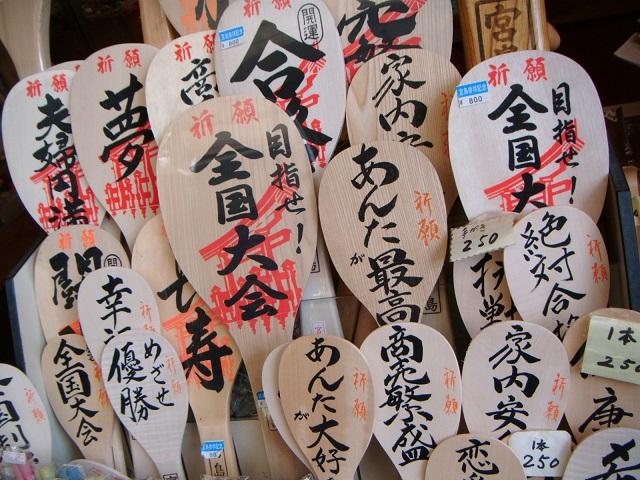 祈願
夫婦円満
祈願
夢
祈願
開運
合
祈願
家内安
宮島参拝記念
¥800
祈願
目指せ!
全国大
祈願
目指せ!
全国大会
祈願
あんたが最高
手がき
250
祈願
絶対合格
祈願
闘
開
祈願
幸
祈願
全国大会
祈願
めざせ
優勝
寿
祈願
あんたが大好
祈願
商売繁盛
祈願
家内安
1本
250
康
恋
1本
250
希